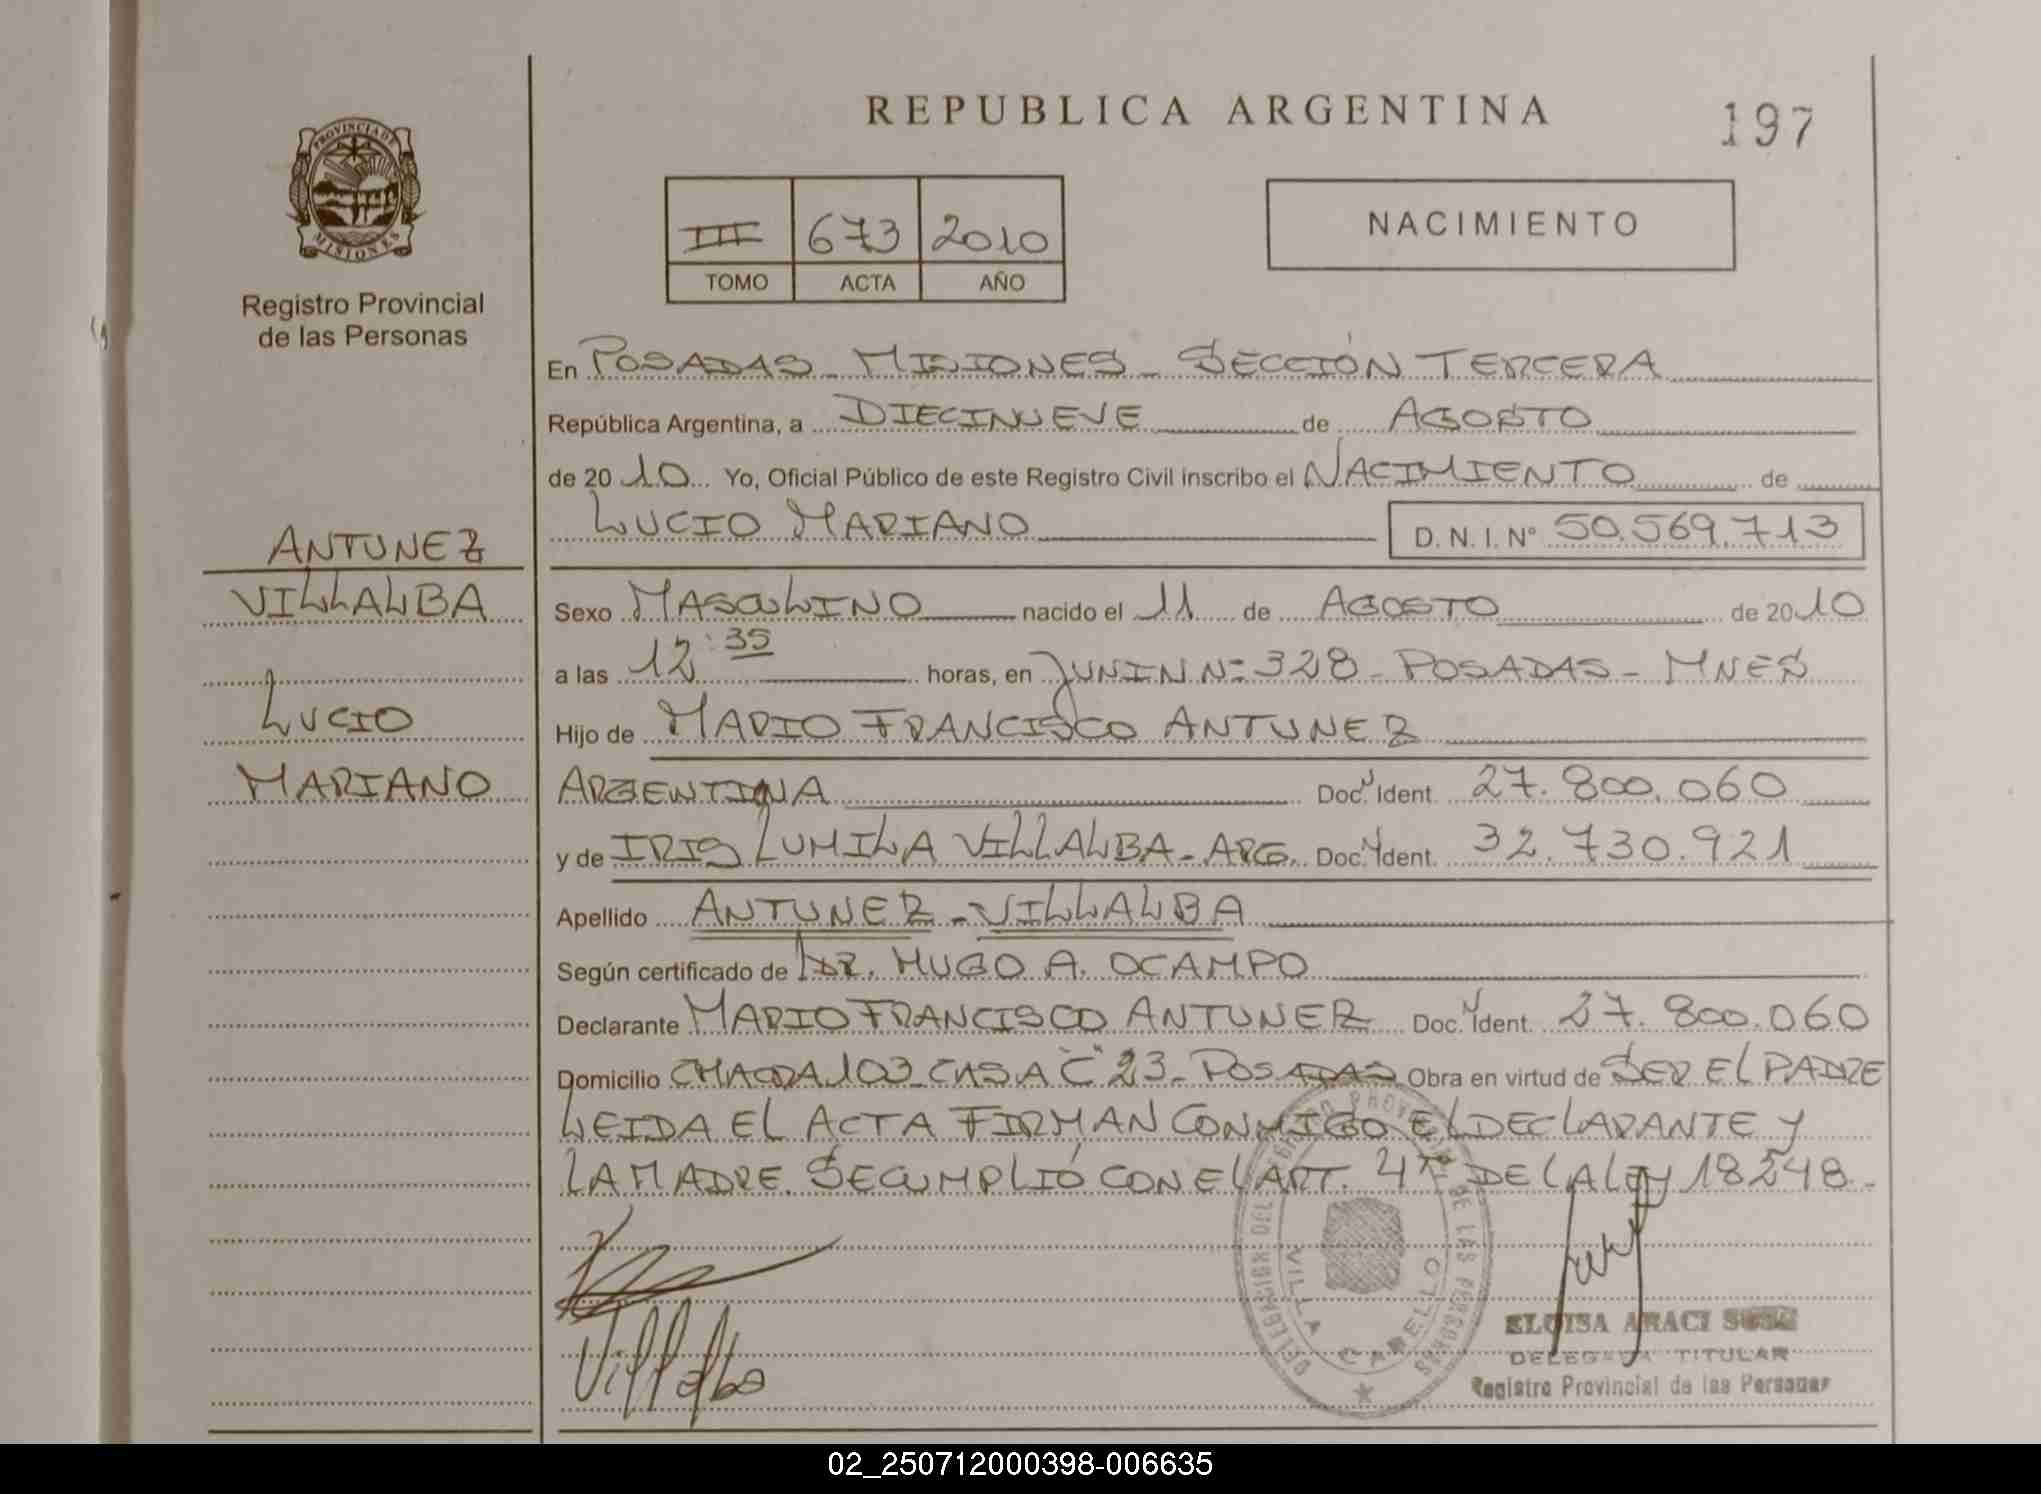 REPUBLICA ARGENTINA
197
PROVINCIA DE
MISIONES
Registro Provincial
de las Personas
III 673 2010
TOMO ACTA AÑO
NACIMIENTO
En POSADAS - MISIONES - SECCIÓN TERCERA
República Argentina, a DIECINUEVE de AGOSTO
de 2010 Yo, Oficial Público de este Registro Civil inscribo el NACIMIENTO de
LUCIO MARIANO D.N.I. Nº 50.569.713
ANTUNEZ
VILLALBA
LUCIO
MARIANO
Sexo MASCULINO nacido el 11 de AGOSTO de 2010
a las 12:35 horas, en JUNIN Nº 328 - POSADAS - MNES
Hijo de MARIO FRANCISCO ANTUNEZ
ARGENTINA Doc. Ident. 27.800.060
y de IRIS LUMILA VILLALBA - ARG. Doc. Ident. 32.730.921
Apellido ANTUNEZ - VILLALBA
Según certificado de DR. HUGO A. OCAMPO
Declarante MARIO FRANCISCO ANTUNEZ Doc. Ident. 27.800.060
Domicilio CHACRA 103 CASA "C" 23 - POSADAS Obra en virtud de SER EL PADRE
LEIDA EL ACTA FIRMAN CONMIGO EL DECLARANTE Y
LA MADRE. SE CUMPLIÓ CON EL ART. 4TO DE LA LEY 18248.-
DELEGACION DEL REGISTRO PROVINCIAL DE LAS PERSONAS
VILLA CABELLO
Villalba
ELOISA ARACI
DELEGADA TITULAR
Registro Provincial de las Personas
02_250712000398-006635